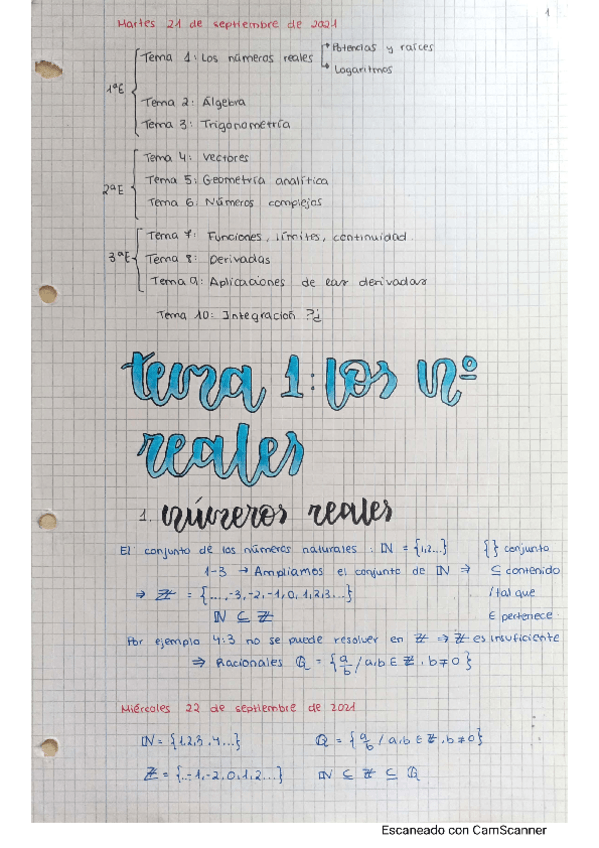 1
Martes 21 de septiembre de 2021
1ªE
Tema 1: Los números reales → Potencias y raíces
→ Logaritmos
Tema 2: Álgebra
Tema 3: Trigonometría
2ªE
Tema 4: Vectores
Tema 5: Geometría analítica
Tema 6: Números complejos
3ªE
Tema 7: Funciones, límites, continuidad
Tema 8: Derivadas
Tema 9: Aplicaciones de las derivadas
Tema 10: Integración ?¿
tema 1: los nº
reales
1. números reales
El conjunto de los números naturales: ℕ = {1,2...} {} conjunto
1-3 → Ampliamos el conjunto de ℕ ⇒ ⊆ contenido
⇒ ℤ = {..., -3,-2,-1,0,1,2,3...} / tal que
ℕ ⊆ ℤ ∈ pertenece
Por ejemplo 4:3 no se puede resolver en ℤ ⇒ ℤ es insuficiente
⇒ Racionales ℚ = {a/b / a,b ∈ ℤ, b≠0}
Miércoles 22 de septiembre de 2021
ℕ = {1,2,3,4...} ℚ = {a/b / a,b ∈ ℤ, b≠0}
ℤ = {..-1,-2,0,1,2...} ℕ ⊆ ℤ ⊆ ℚ
Escaneado con CamScanner